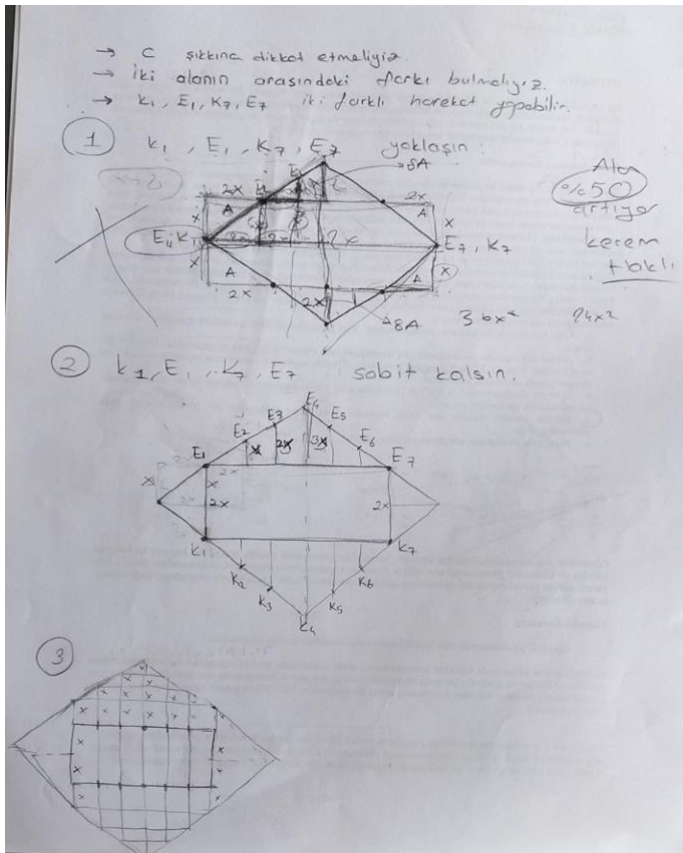 → C şıkkına dikkat etmeliyiz.
→ İki alanın arasındaki farkı bulmalıyız.
→ K1, E1, K7, E7 iki farklı hareket yapabilir.
1 K1, E1, K7, E7 yaklaşın
8A
Alan
%50
artıyor
Kerem
Haklı
2x 2x
x A A x
E1, K1 2x 2x 2x E7, K7
x A A x
2x 2x
8A 36x² 24x²
2 K1, E1, K7, E7 sabit kalsın.
E4
E3 E5
E2 x 2x 3x E6
E1 2x E7
x
2x 2x
K1 K7
K2 K6
K3 K5
K4
3
x
x x x
x x x x
x x x x x x
x x
x x